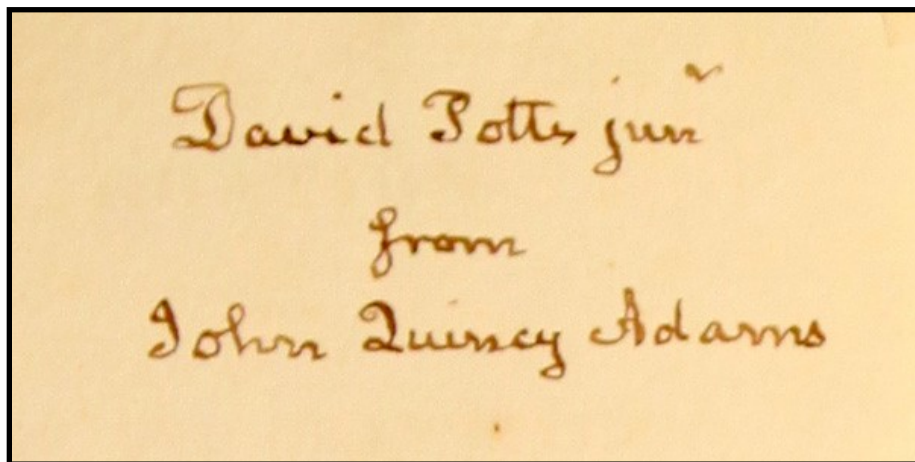 David Potts junʳ
from
John Quincy Adams